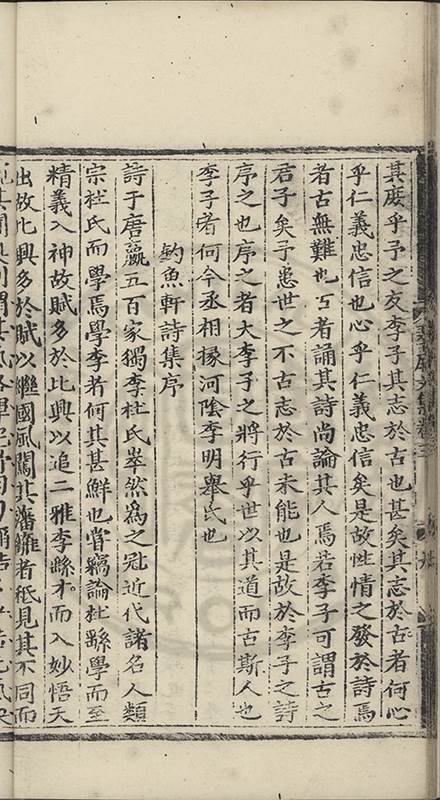 其廢乎予之友李子其志於古也甚矣其志於古者何心
乎仁義忠信也心乎仁義忠信矣是故性情之發於詩焉
者古無難也古者誦其詩尚論其人焉若李子可謂古之
君子矣予患世之不古志於古未能也是故於李子之詩
序之也序之者大李子之將行乎世以其道而古斯人也
李子者何今丞相掾河陰李明舉氏也
釣魚軒詩集序
詩于唐贏五百家獨李杜氏崒然為之冠近代諸名人類
宗杜氏而學焉學李者何其甚鮮也嘗竊論杜繇學而至
精義入神故賦多於比興以追二雅李繇才而入妙悟天
出故比興多於賦以繼國風闖其藩籬者秖見其不同而